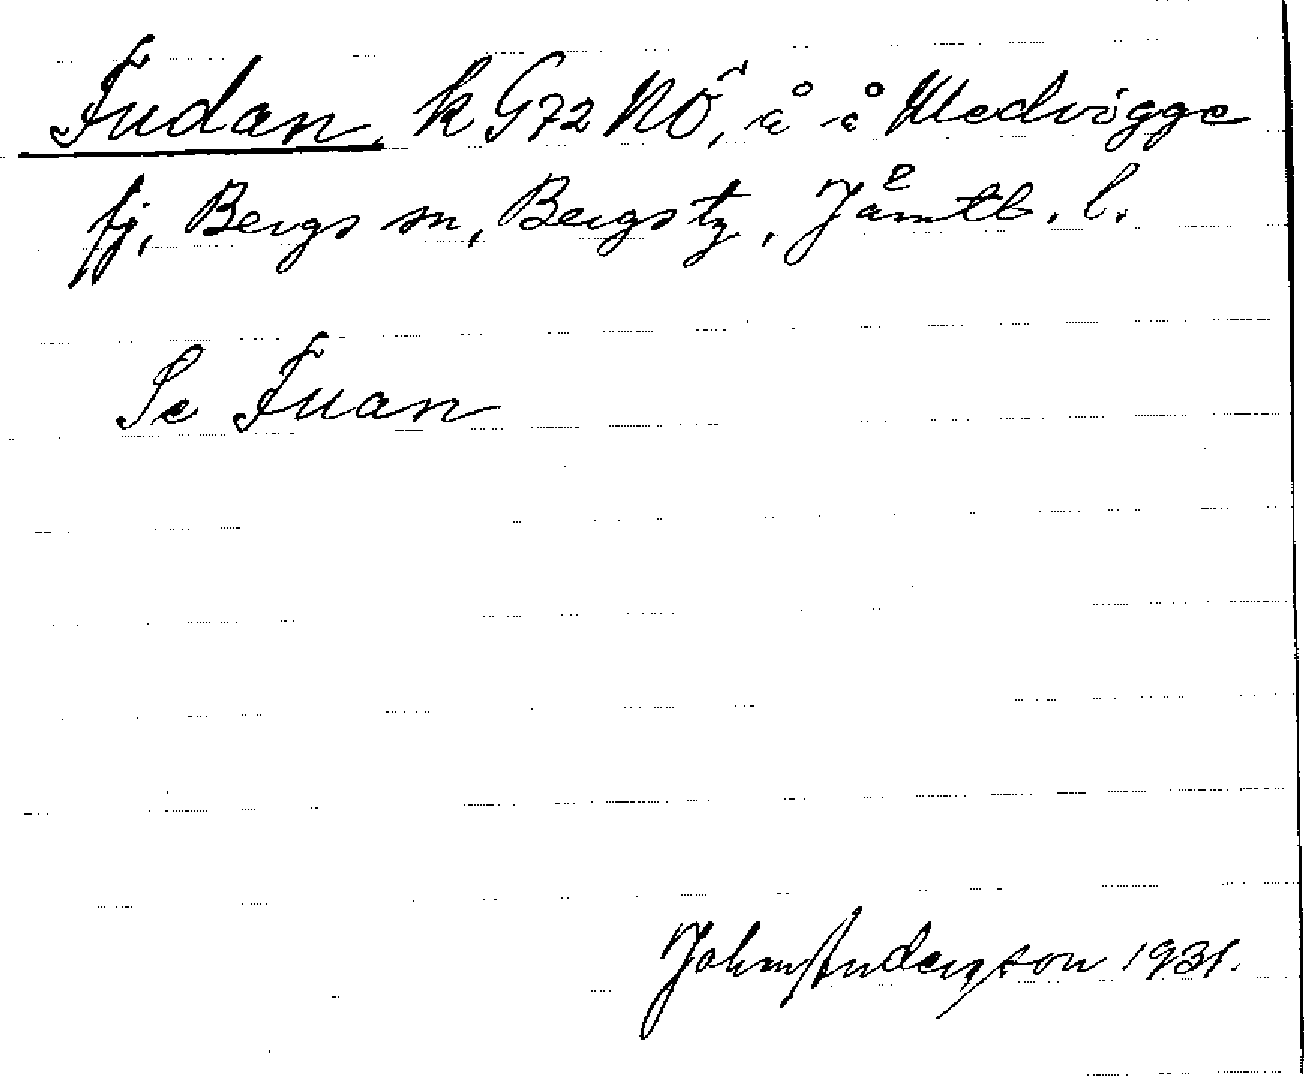 Fudan, k G72 NÖ, å å Medvigge
fj, Bergs sn, Bergs tg, Jämtl. l.
Se Fuan
John Anderson 1931.